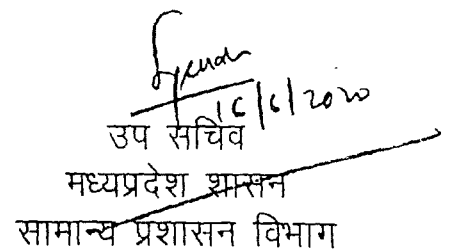 16/6/2020
उप सचिव
मध्यप्रदेश शासन
सामान्य प्रशासन विभाग